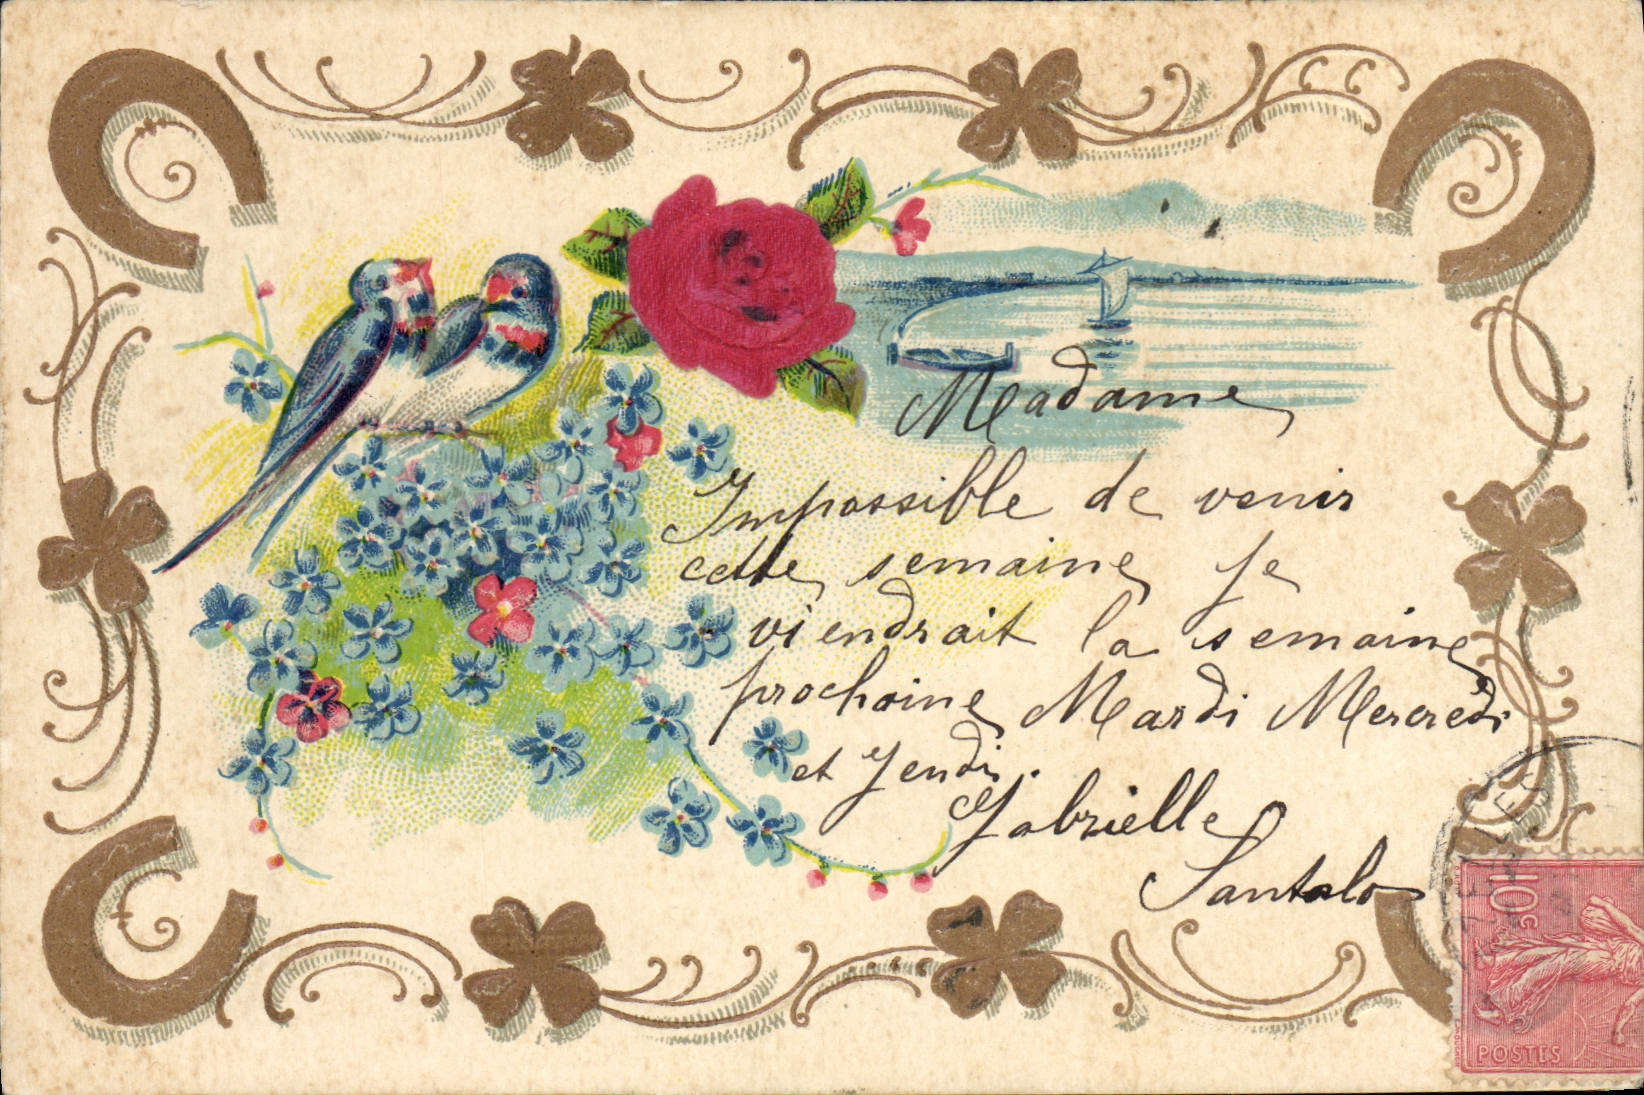 Madame
Impossible de venir
cette semaine je
viendrait la semaine
prochaine Mardi Mercredi
et Jendi.
Gabrielle
Santalo
10c
POSTES